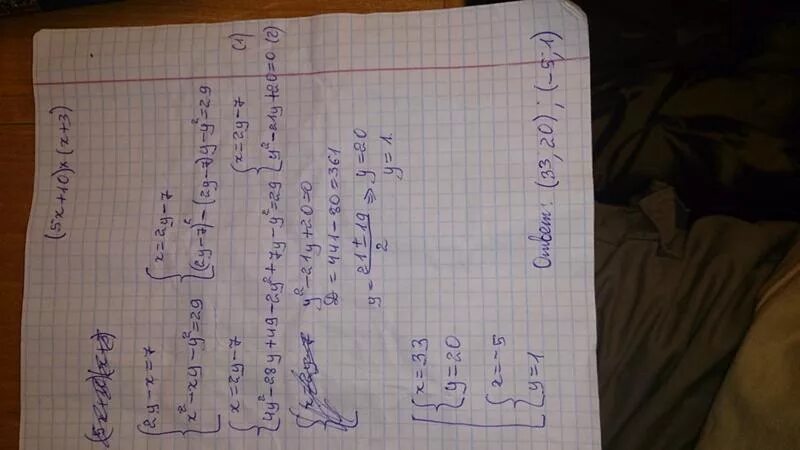 (5x+10)×(x+3)
{2y-x=7
{x²-xy-y²=29
{x=2y-7
{(2y-7)²-(2y-7)y-y²=29
{x=2y-7
{4y²-28y+49-2y²+7y-y²=29
{x=2y-7 (1)
{y²-21y+20=0 (2)
y²-21y+20=0
D=441-80=361
y=21±19/2 => y=20
y=1.
[{x=33
{y=20
{x=-5
{y=1
Ответ: (33, 20); (-5; 1)